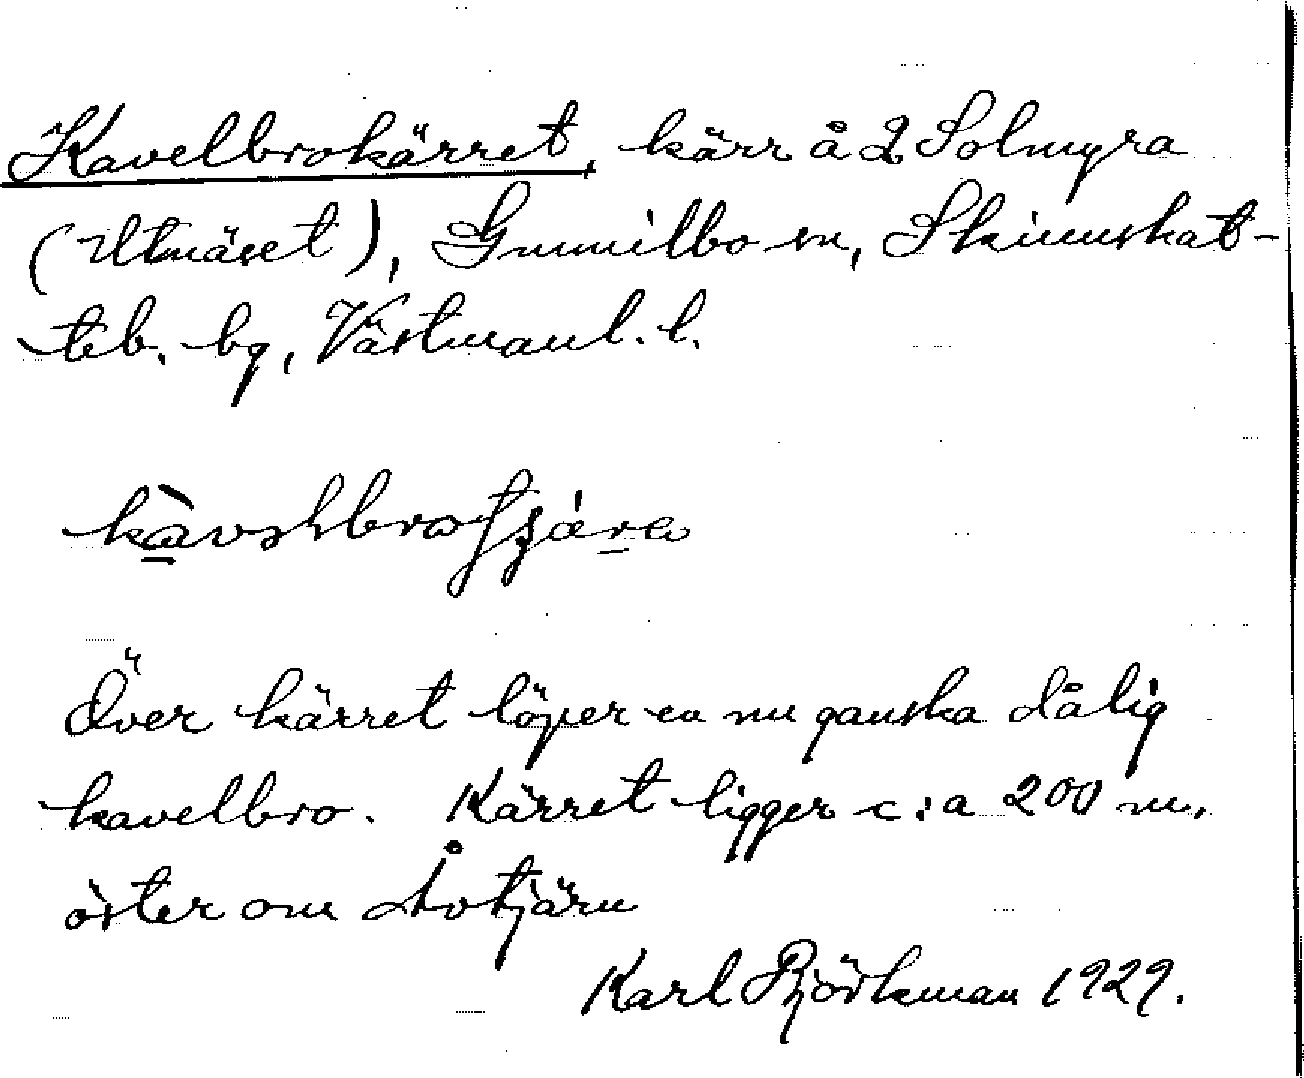 Kavelbrokärret, kärr å 2 Solmyra
(Utnäset), Gunnilbo sn, Skinnskat-
teb. bg, Västmanl. l.
Över kärret löper en nu ganska dålig
kavelbro. Kärret ligger c:a 200 m.
öster om Åvtjärn
Karl Björkman 1929.